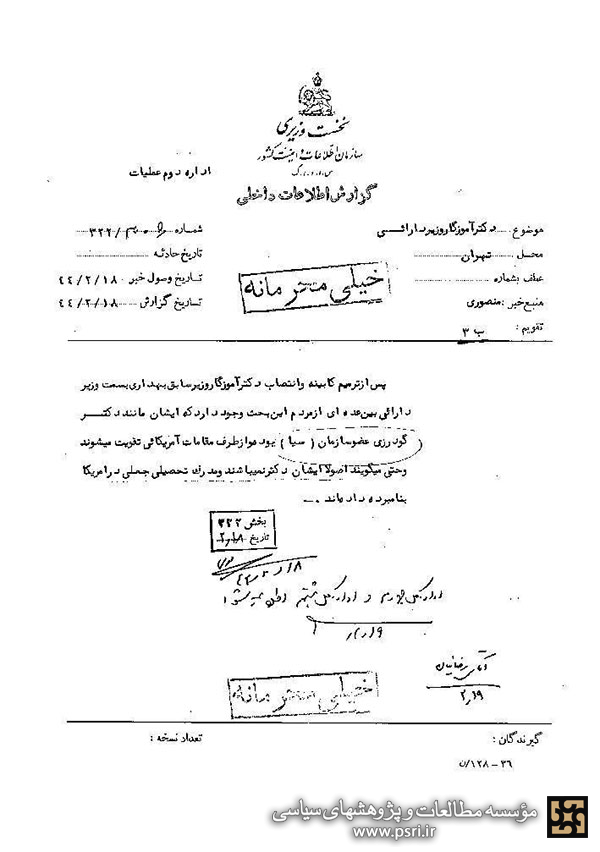 نخست وزیری
سازمان اطلاعات و امنیت کشور
س.ا.و.ا.ک
اداره دوم عملیات
گزارش اطلاعات داخلی
موضوع : دکترآموزگاروزیردارائی
شماره ۳۲۲/
محل تهران
تاریخ حادثه
عطف بشماره
تاریخ وصول خبر ۴۴/۲/۱۸
منبع خبر : منصوری
تاریخ گزارش ۴۴/۲/۱۸
تقویم : ب ۳
خیلی محرمانه
پس ازترمیم کابینه وانتصاب دکترآموزگاروزیرسابق بهداری بسمت وزیر
دارائی بین عده ای ازمردم این بحث وجود داردکه ایشان مانند دکتر
گودرزی عضوسازمان ( سیا ) بوده وازطرف مقامات آمریکائی تقویت میشوند
وحتی میگویند اصولا ایشان دکترنمیباشند ومدرک تحصیلی جعلی درامریکا
بنامبرده داده اند .
بخش ۳۲۲
تاریخ ۲/۱۸
۲/۱۹
آقای رضائیان
۲/۱۹
خیلی محرمانه
گیرندگان :
تعداد نسخه :
۳۶-۱۲۸/ن
مؤسسه مطالعات و پژوهشهای سیاسی
www.psri.ir